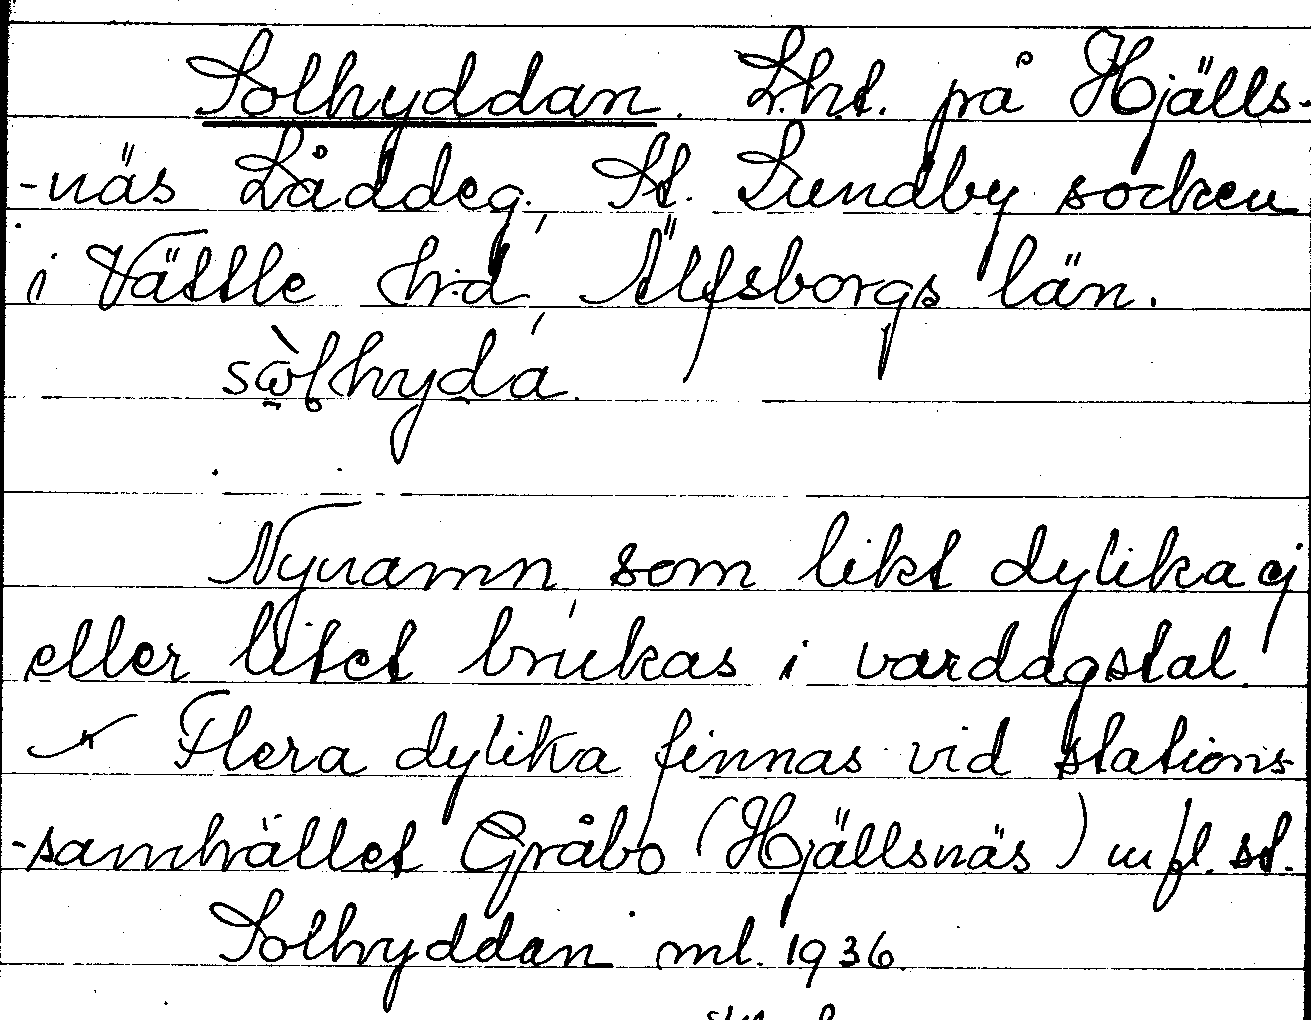 Solhyddan. Lht. på Hjälls-
-näs Låddeg, St. Lundby socken
i Vättle h:d, Älfsborgs län.
sòlhyda.
Nynamn, som likt dylika ej
eller litet brukas i vardagstal.
Flera dylika finnas vid stations-
-samhället Gråbo (Hjällsnäs) m fl. st.
Solhyddan ml. 1936.